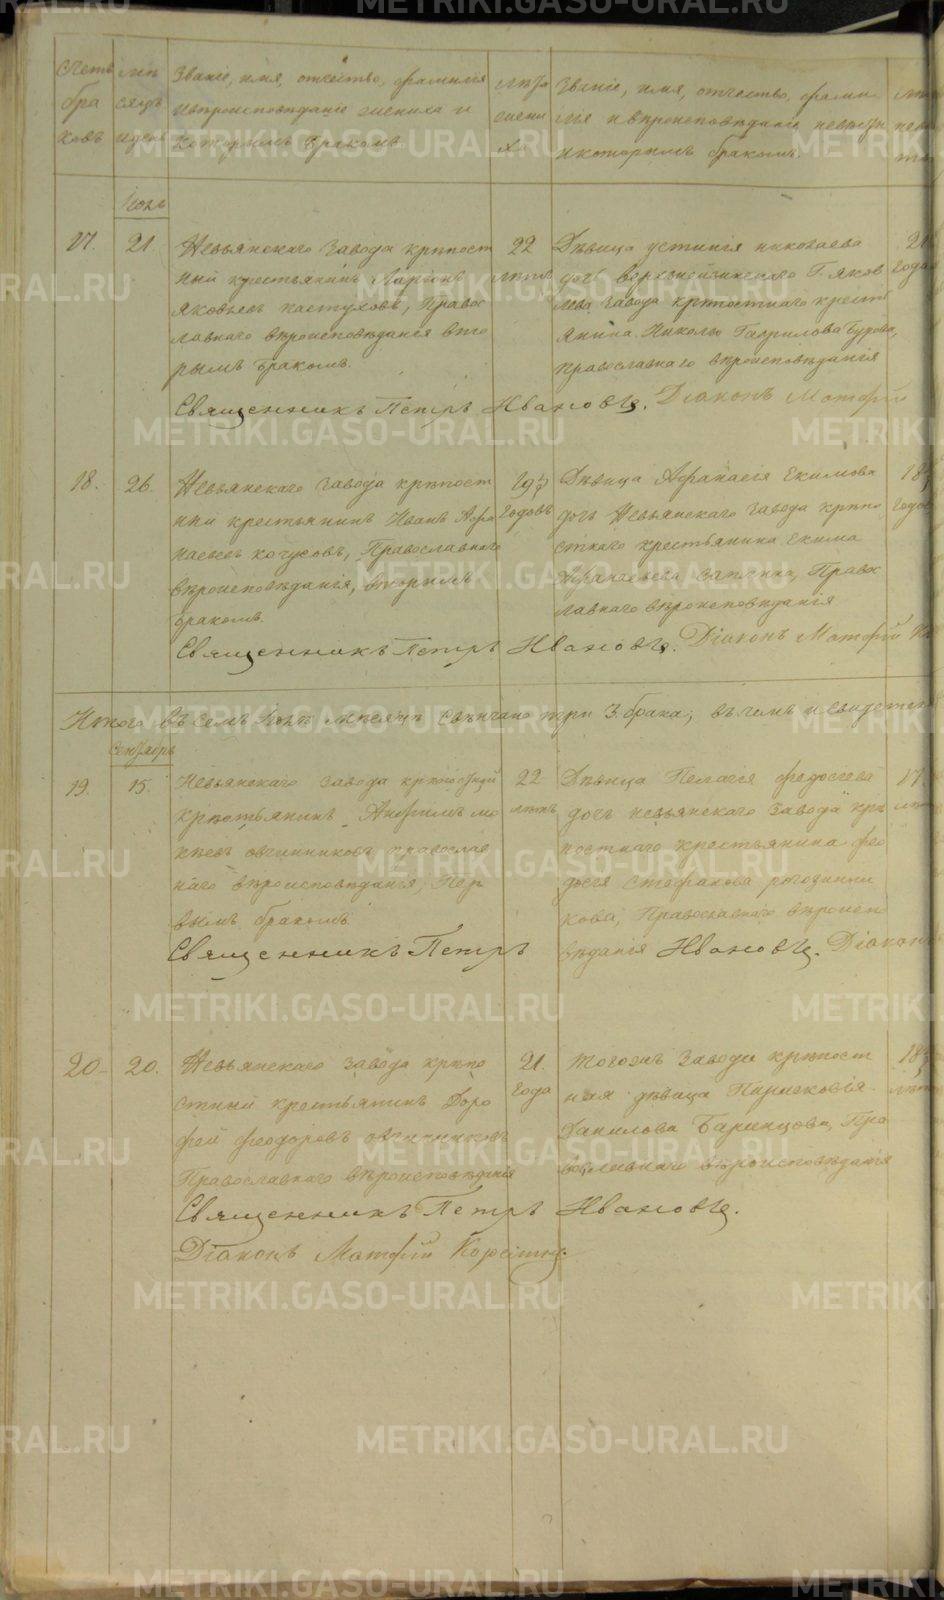 Счетъ бра ковъ
мѣ сяцъ и день
Званіе, имя, отчество, фамилія
и вѣроисповѣданіе жениха и
которымъ бракомъ.
лѣта жени ха
Званіе, имя, отчество, фами
лія и вѣроисповѣданіе невѣсты
и которымъ бракомъ.
Іюль
17.
21
Невьянскаго завода крѣпост
ный крестьянинъ Ларіонъ
Яковлевъ Пастуховъ, Правос
лавнаго вѣроисповѣданія вто
рымъ бракомъ.
22
лѣтъ
Дѣвица Устинія Николаева
дочь Верхнейвинскаго Г. Яков
лева завода крѣпостнаго кресть
янина Николы Гаврилова Бурова,
православнаго вѣроисповѣданія
21
года
Священникъ Петръ Ивановъ. Діаконъ Матфій
18.
26.
Невьянскаго завода крѣпост
ный крестьянинъ Иванъ Афа
насьевъ Кочуховъ, Православнаго
вѣроисповѣданія, вторымъ
бракомъ.
годовъ
Дѣвица Афанасія Екимова
дочь Невьянскаго завода крѣпо
стнаго крестьянина Екима
Афанасьева Православнаго вѣроисповѣданія
18½
годов
Священникъ Петръ Ивановъ. Діаконъ Матфій
Итого въ семъ Іюлѣ мѣсяцѣ свѣнчано три 3. брака; въ чемъ и свидетел
Сентябрь
19.
15.
Невьянскаго завода крѣпостный
крестьянинъ Анфимъ Мо
кѣевъ Овчинниковъ православ
наго вѣроисповѣданія, Пер
вымъ бракомъ
22
лѣтъ
Дѣвица Пелагія Федосеева
дочь Невьянскаго завода крѣ
постнаго крестьянина Фео
досея Стефанова Рогозинни
кова, Православнаго вѣроиспо
вѣданія
17.
Священникъ Петръ Ивановъ. Діаконъ
20.
20.
Невьянскаго завода крѣпо
стный крестьянинъ Доро
фей Феодоровъ Овчинниковъ
Православнаго вѣроисповѣданія
21.
года
Тогожъ завода крѣпост
ная дѣвица Парасковія
Данилова Баринцова, Пра
вославнаго вѣроисповѣданія
18½
лѣтъ
Священникъ Петръ Ивановъ.
Діаконъ Матфій Корсинъ.
METRIKI.GASO-URAL.RU